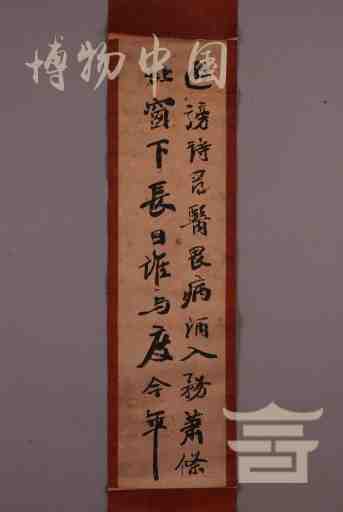 博物中国
避謗詩尋醫畏病酒入務蕭條
北窗下長日誰与度今年